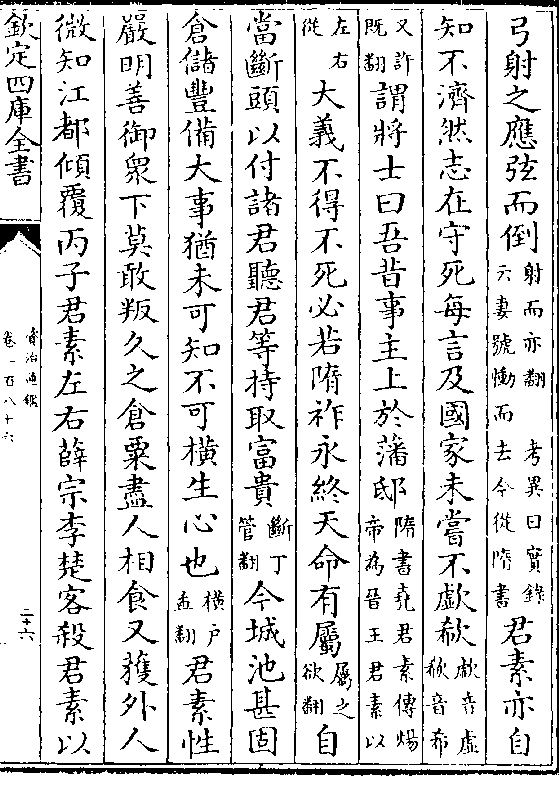 弓射之應弦而倒射而亦翻　考異曰實錄云妻號慟而去今從隋書君素亦自
知不濟然志在守死每言及國家未嘗不歔欷歔音虛欷音希
又許既翻謂將士曰吾昔事主上於藩邸隋書堯君素傳煬帝為晉王君素以
左右從大義不得不死必若隋祚永終天命有屬屬之欲翻自
當斷頭以付諸君聽君等持取富貴斷丁管翻今城池甚固
倉儲豐備大事猶未可知不可橫生心也橫户孟翻君素性
嚴明善御衆下莫敢叛久之倉粟盡人相食又獲外人
微知江都傾覆丙子君素左右薛宗李楚客殺君素以
欽定四庫全書
資治通鑑
卷一百八十六
二十六